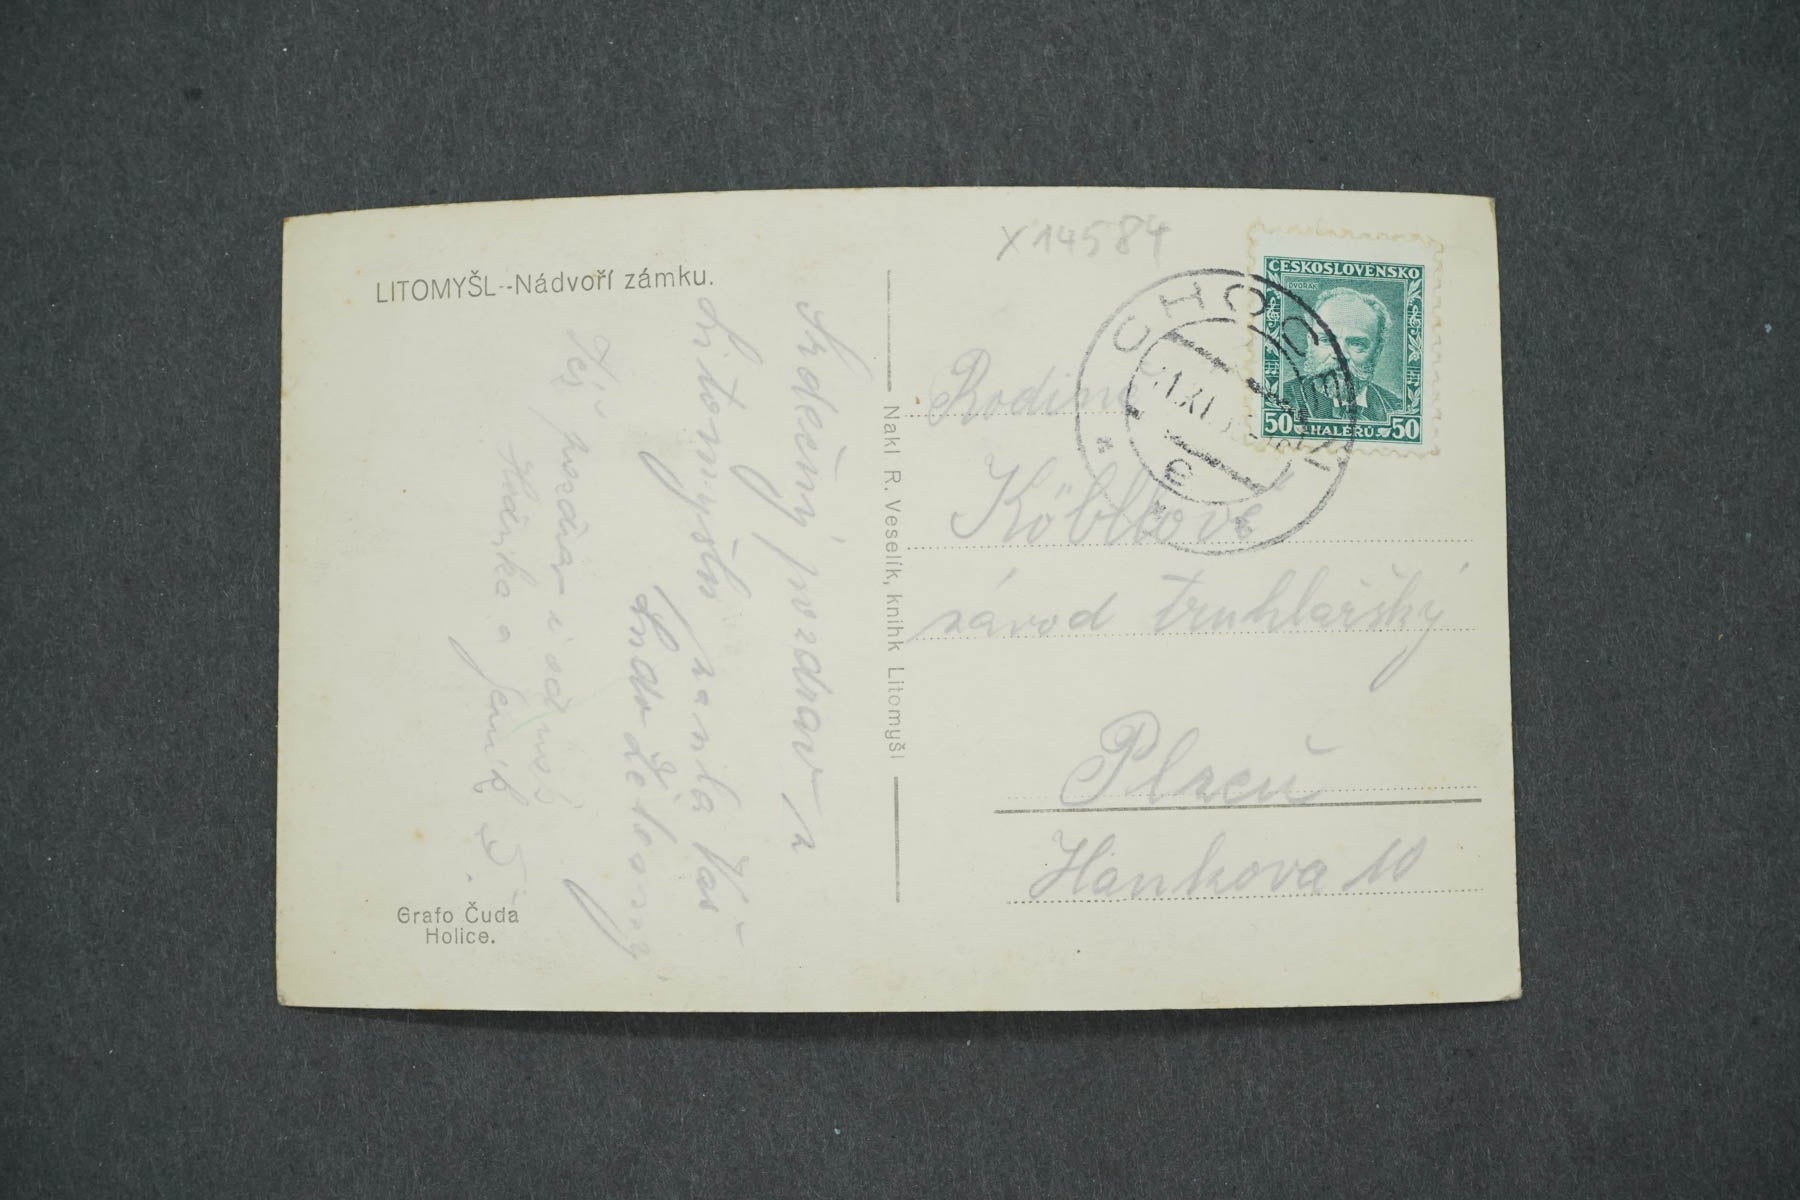 LITOMYŠL--Nádvoří zámku.
Srdečný pozdrav z
Litomyšlu zanlá Vaš
Též pozdrav i od nás
a Jeník
Grafo Čuda
Holice.
Nakl R. Veselík, knihk Litomyšl
X14584
ČESKOSLOVENSKO
DVOŘÁK
50 HALÉŘŮ 50
CHOCEŇ
e
Rodina
Köblbova
závod truhlářský
Plzeň
Hankova 10